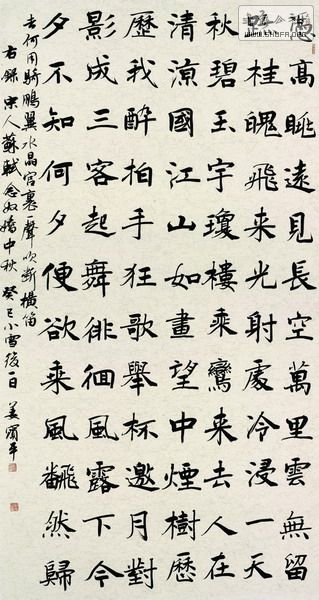 高眺遠見長空萬里雲無留
桂魄飛来光射處冷浸一天
秋碧玉宇瓊樓乘鸞来去人在
清涼國江山如畫望中煙樹歷
歷我醉拍手狂歌舉杯邀月對
影成三客起舞徘徊風露下今
夕不知何夕便欲乘風翻然歸
去何用騎鵬翼水晶宮裏一聲吹斷橫笛
右錄宋人蘇軾念奴嬌中秋 癸巳小雪後一日 姜